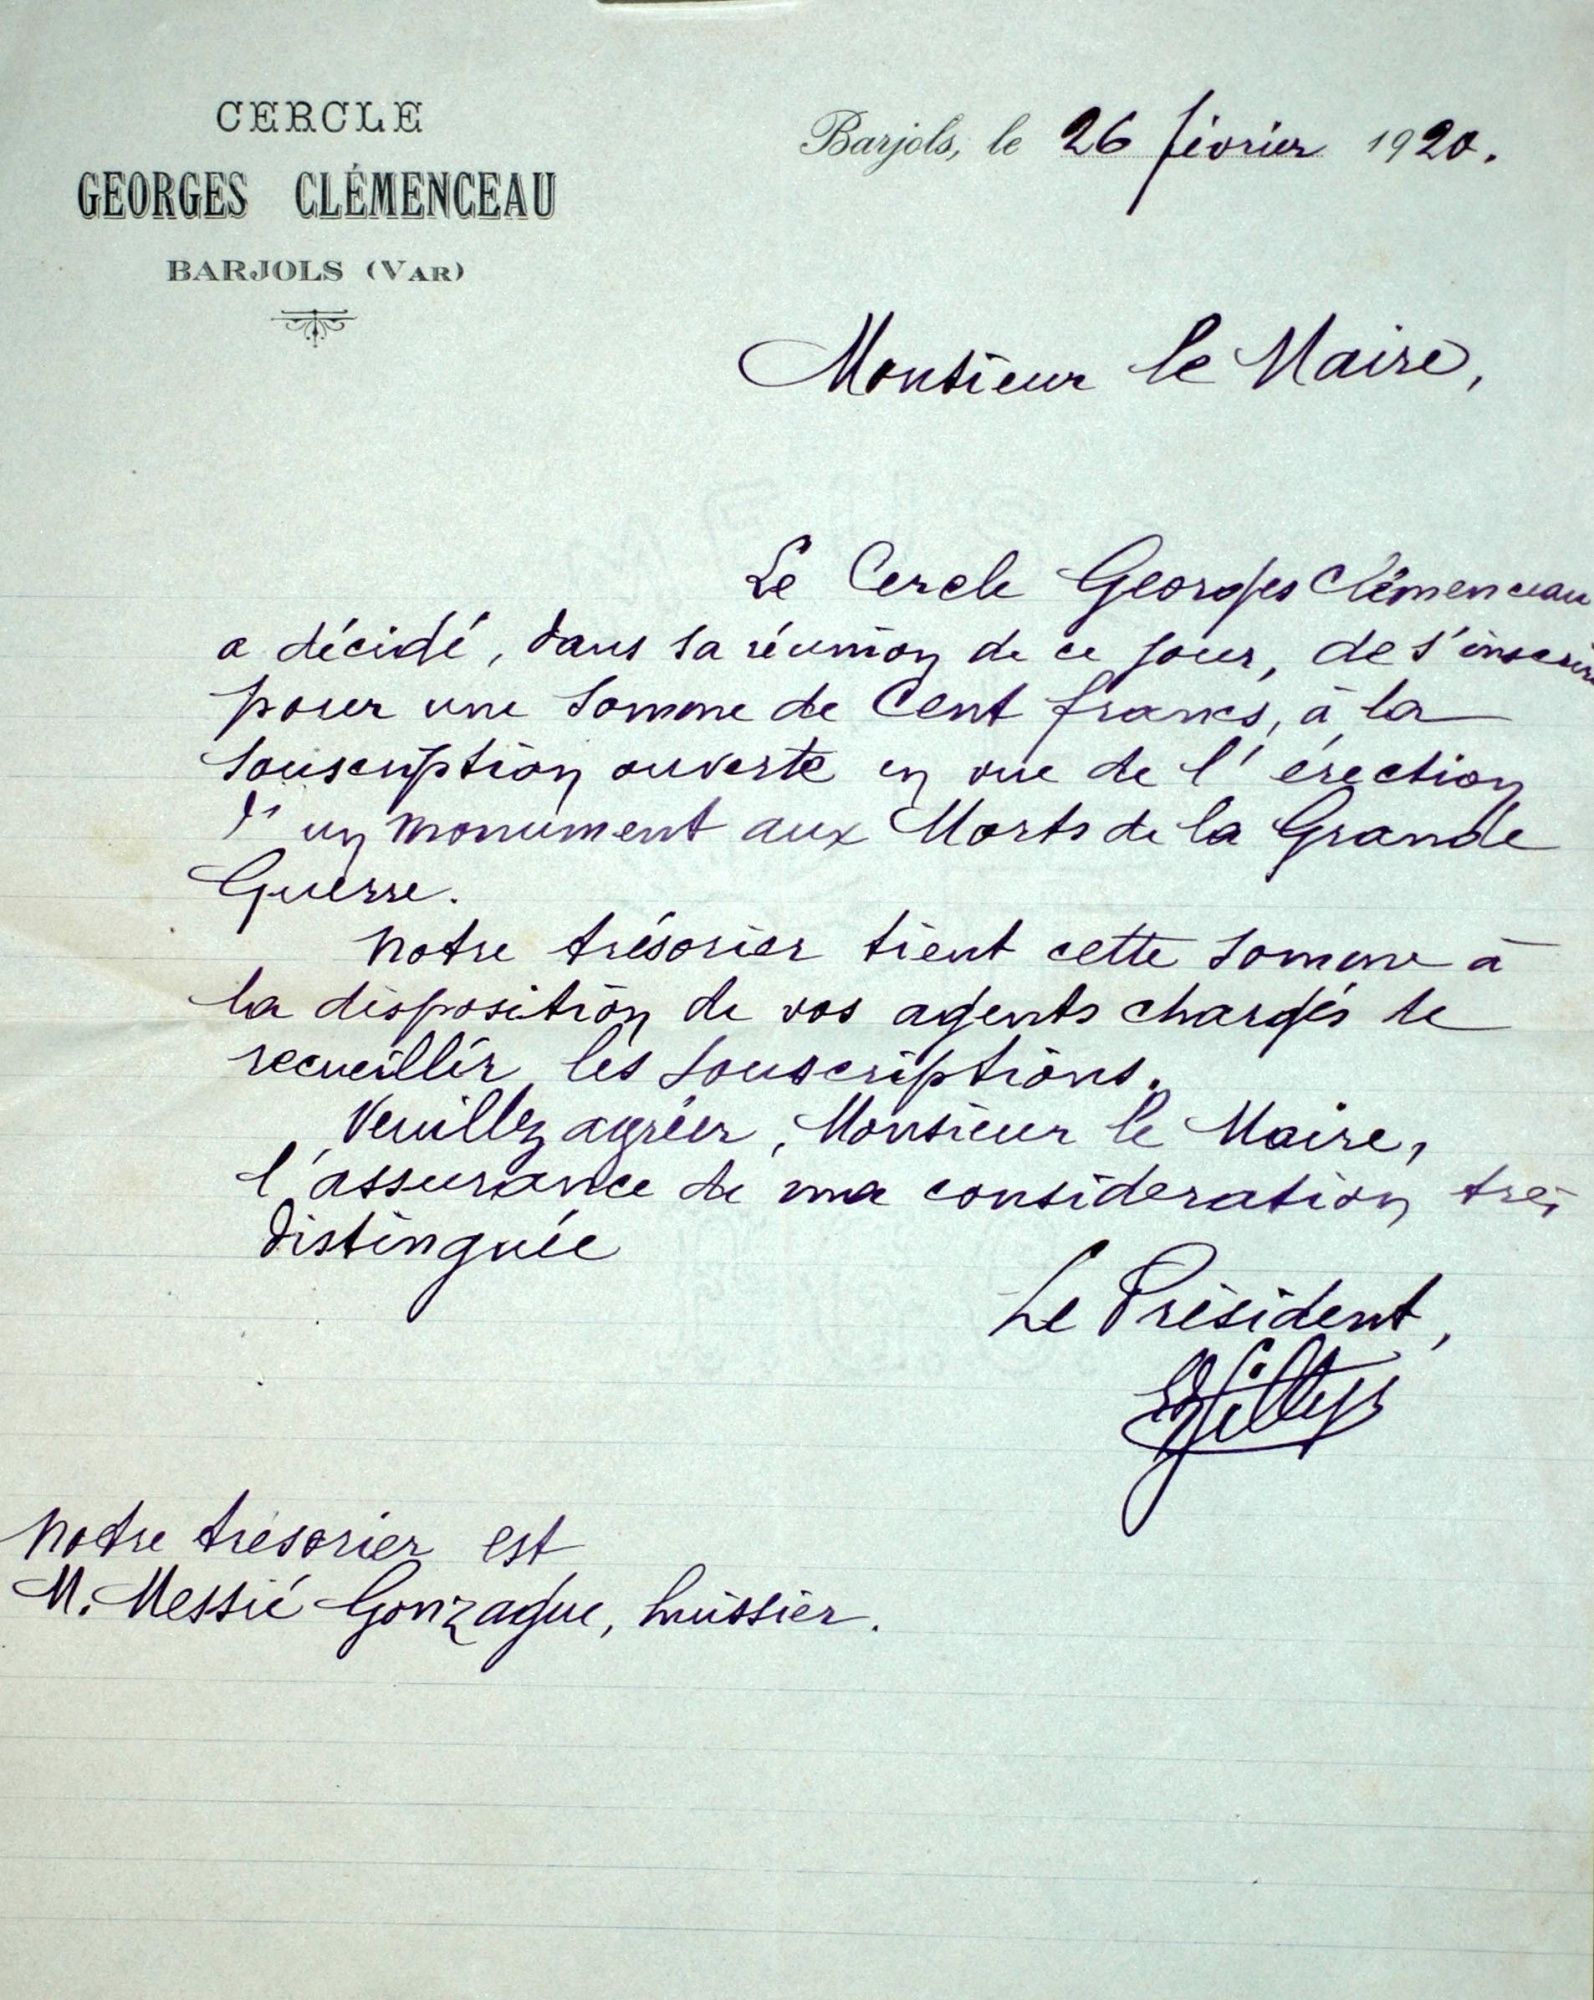 CERCLE
GEORGES CLÉMENCEAU
BARJOLS (VAR)
Barjols, le 26 février 1920.
Monsieur le Maire,
Le Cercle Georges Clémenceau
a décidé, dans sa réunion de ce jour, de s'inscrire
pour une somme de Cent francs, à la
souscription ouverte en vue de l'érection
d'un monument aux Morts de la Grande
Guerre.
Notre trésorier tient cette somme à
la disposition de vos agents chargés de
recueillir les souscriptions.
Veuillez agréer, Monsieur le Maire,
l'assurance de ma considération très
distinguée
Le Président,
Notre trésorier est
M. Messié Gonzague, huissier.